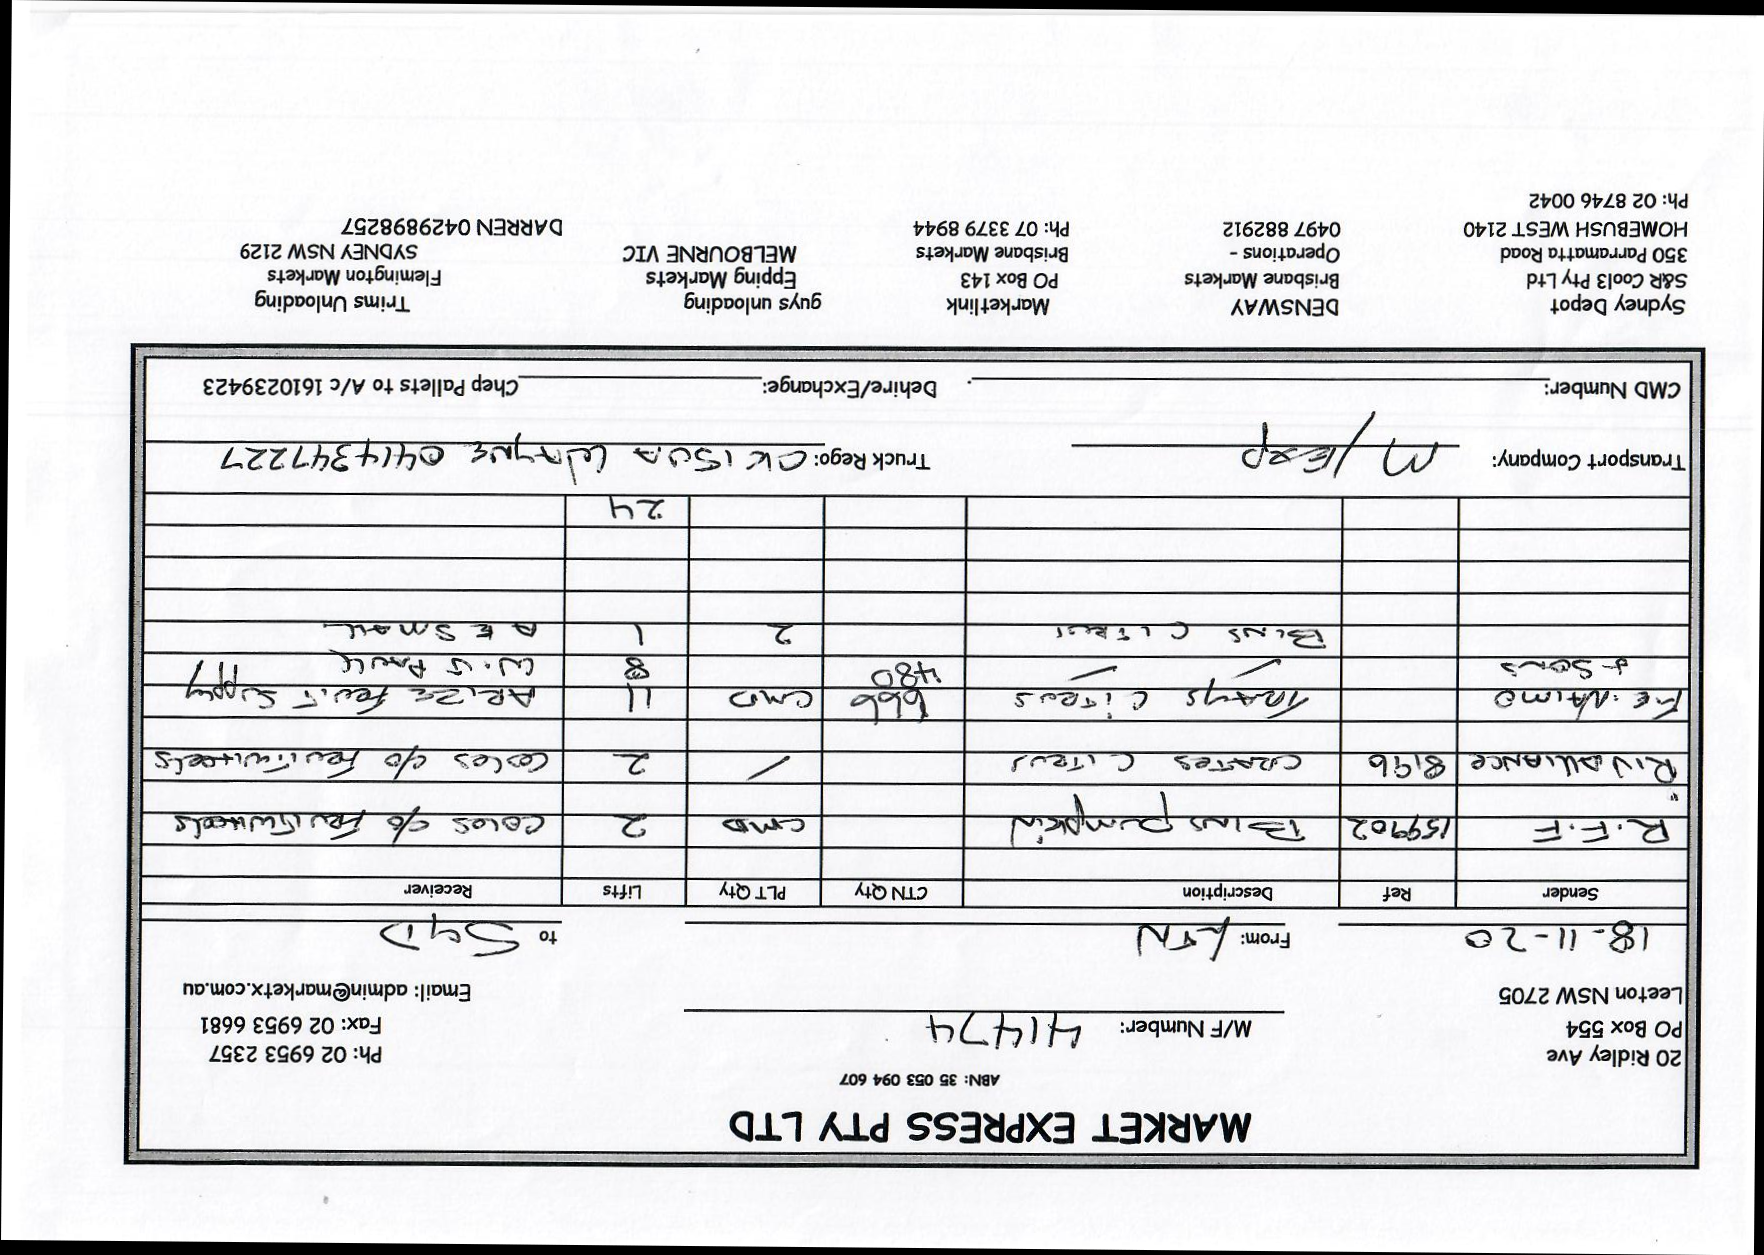 MARKET EXPRESS PTY LTD
ABN: 35 053 094 607
20 Ridley Ave
PO Box 554
Leeton NSW 2705
M/F Number: 41474
Ph: 02 6953 2357
Fax: 02 6953 6681
Email: admin@marketx.com.au
18-11-20 From: LTN to SYD
Sender Ref Description CTN Qty PLT Qty Lifts Receiver
R.F.F 159902 BINS Pumpkin CMD 2 COLES c/o Fruitwheels
"
RIVALLIANCE 8196 CRATES CITRUS / 2 COLES c/o Fruitwheels
F.E. NAIMO TRAYS CITRUS 666 CMD 11 Fruit Supply
+ SONS / / 480 8 W.J PAULL
BINS CITRUS 2 1 A E SMALL
24
Transport Company: M/Exp Truck Rego: WAYNE 0414347227
CMD Number: Dehire/Exchange: Chep Pallets to A/c 1610239423
Sydney Depot
S&R Cool3 Pty Ltd
350 Parramatta Road
HOMEBUSH WEST 2140
Ph: 02 8746 0042
DENSWAY
Brisbane Markets
Operations -
0497 882912
Marketlink
PO Box 143
Brisbane Markets
Ph: 07 3379 8944
guys unloading
Epping Markets
MELBOURNE VIC
Trims Unloading
Flemington Markets
SYDNEY NSW 2129
DARREN 0429898257